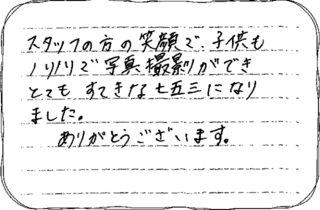 スタッフの方の笑顔で、子供も
ノリノリで写真撮影ができ
とても すてきな七五三になり
ました。
ありがとうございます。